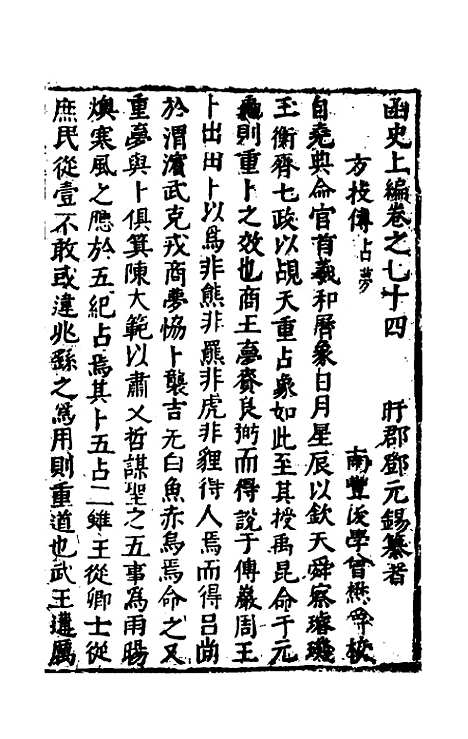 函史上編卷之七十四　　盱郡鄧元錫纂著
方技傳占夢　　南豐後學曾懋爵校
自堯典命官首羲和曆象日月星辰以欽天舜察璿璣
玉衡齊七政以覘天重占象如此至其授禹昆命于元
龜則重卜之效也商王夢賚良弼而得說于傅巖周王
卜出田卜以爲非熊非羆非虎非貍得人焉而得呂尚
於渭濱武克戎商夢恊卜襲吉无白魚赤烏焉命之又
重夢與卜俱箕陳大範以肅乂哲謀聖之五事爲雨暘
燠寒風之應於五紀占焉其卜五占二雖王從卿士從
庶民從壹不敢或違兆繇之爲用則重道也武王遘厲